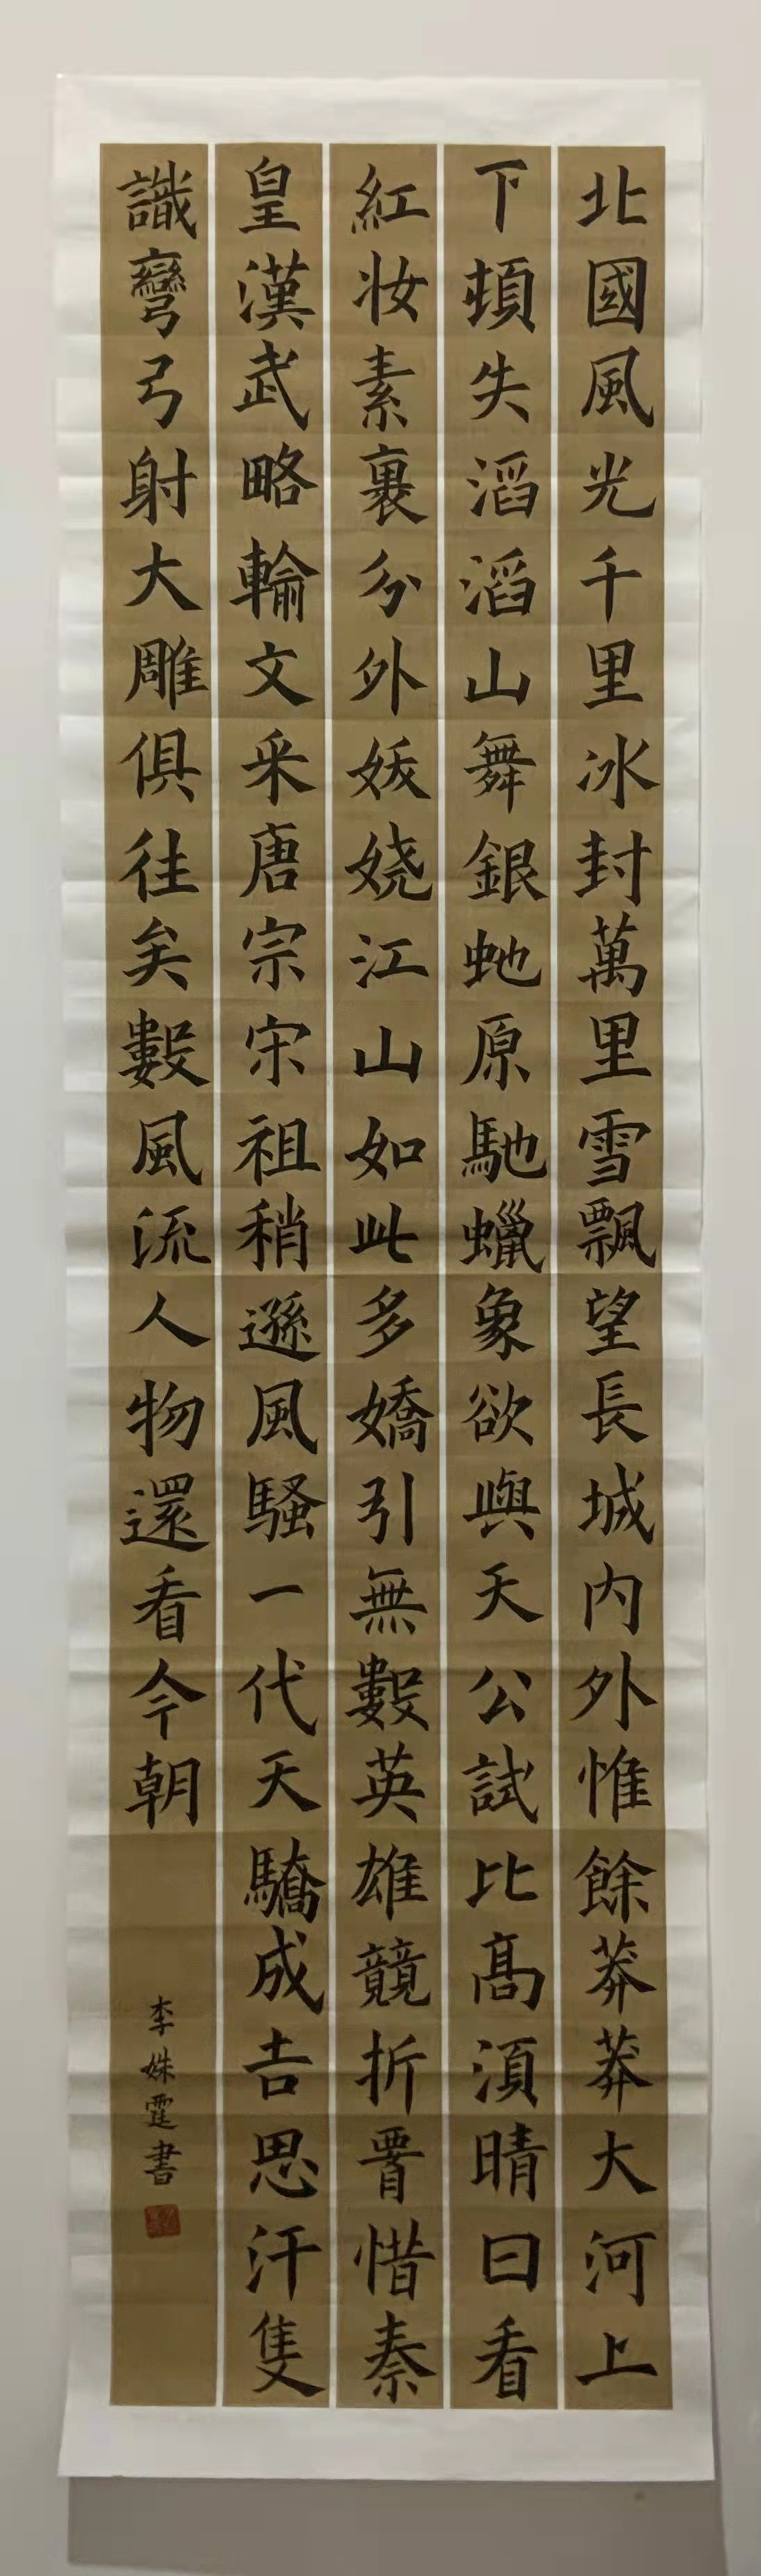 北國風光千里冰封萬里雪飄望長城内外惟餘莽莽大河上
下頓失滔滔山舞銀虵原馳蠟象欲與天公試比髙湏晴日看
紅妆素裹分外妖娆江山如此多嬌引無數英雄競折惜秦
皇漢武略輪文采唐宗宋祖稍遜風騷一代天驕成吉思汗隻
識彎弓射大雕俱往矣數風流人物還看今朝
李姝霆書